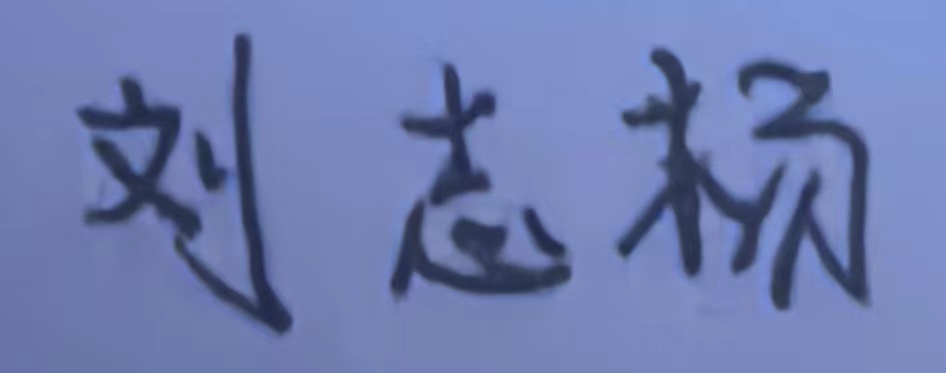 刘志杨